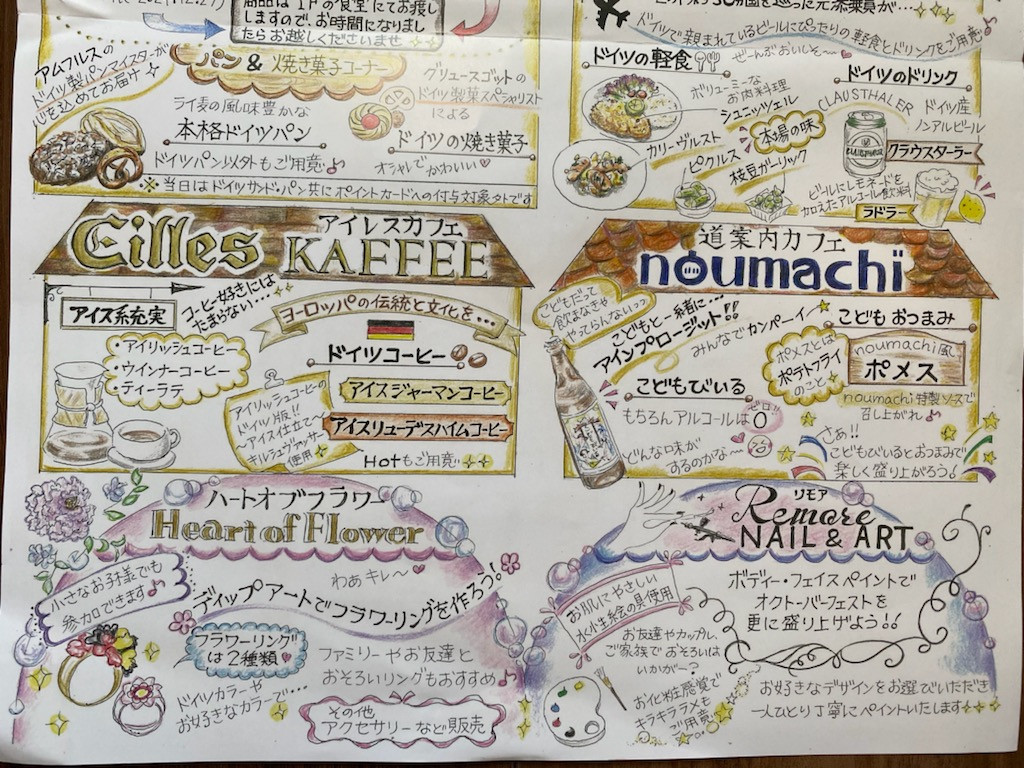 商品は、1Fの食堂にてお渡し
しますので、お時間になりまし
たらお越しくださいませ
アムフルスの
ドイツ製パンマイスターが
心を込めてお届け
パン & 焼き菓子コーナー
ライ麦の風味豊かな
本格ドイツパン
ドイツパン以外もご用意♪
グリュースゴットの
ドイツ製菓スペシャリスト
による
ドイツの焼き菓子
オシャレでかわいい♡
※ 当日はドイツサンド・パン共にポイントカードへの付与対象外です
ドイツで親まれているビールにぴったりの軽食とドリンクをご用意♪
ぜーんぶおいしそ〜♡
ドイツの軽食
ボリューミーな
お肉料理
シュニッツェル
カリーヴルスト
ピクルス
枝豆ガーリック
本場の味
ドイツのドリンク
CLAUSTHALER
ドイツ産
ノンアルビール
クラウスターラー
ビールにレモネードを
加えたアルコール飲料
ラドラー
アイレスカフェ
Eilles KAFFEE
アイス系充実
コーヒー好きには
たまらない...
・アイリッシュコーヒー
・ウインナーコーヒー
・ティーラテ
ヨーロッパの伝統と文化を...
ドイツコーヒー
アイリッシュコーヒーの
ドイツ版!!
〜アイス仕立て〜
キルシュヴァッサー
使用
アイスジャーマンコーヒー
アイスリューデスハイムコーヒー
Hotもご用意
道案内カフェ
noumachi
こどもだって
飲まなきゃ
やってらんないっっ
こどもと一緒に...
アインプロージット!!
みんなでカンパーイ
こどもびいる
もちろんアルコールは0
ゼロ!!
どんな口味が
するのかな〜
こどもおつまみ
ポメスとは
ポテトフライ
のこと
noumachi風
ポメス
noumachi特製ソースで
召し上がれ♪
さぁ!!
こどもびいるとおつまみで
楽しく盛り上がろう!
ハートオブフラワー
Heart of Flower
小さなお子様でも
参加できます♪
わぁキレ〜♥
ディップアートでフラワーリングを作ろう!
フラワーリング
は2種類♥
ドイツカラーや
お好きなカラーで...
ファミリーやお友達と
おそろいリングもおすすめ♪
その他
アクセサリーなど販売
リモア
Remore
NAIL & ART
お肌にやさしい
水性絵の具使用
ボディー・フェイスペイントで
オクトーバーフェストを
更に盛り上げよう!!
お友達やカップル、
ご家族でおそろいは
いかが〜?
お化粧感覚で
キラキララメも
ご用意
お好きなデザインをお選びいただき
一人ひとり丁寧にペイントいたします